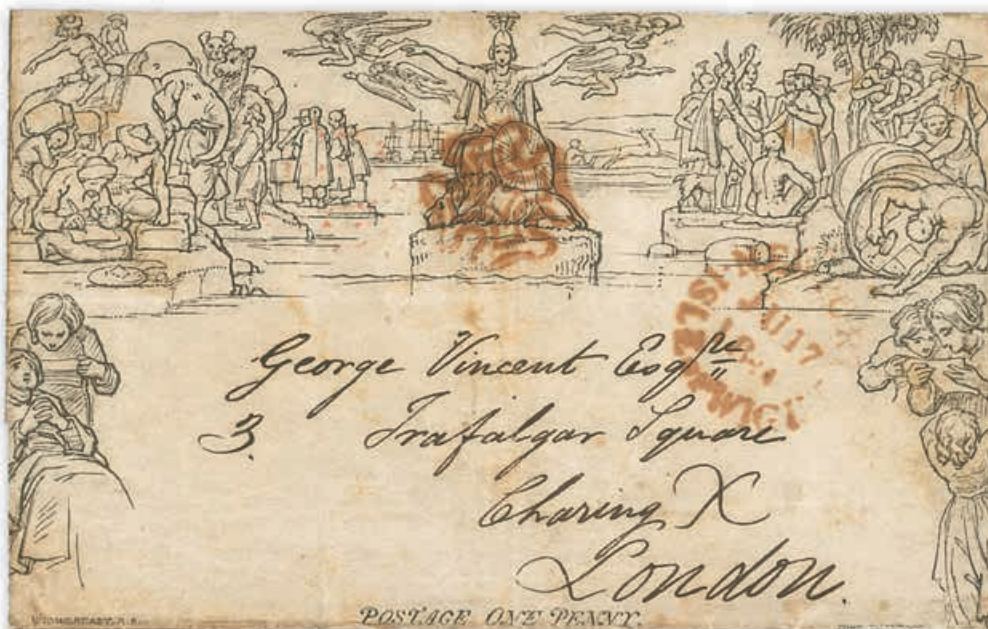 George Vincent Esq^re
3. Trafalgar Square
Charing X
London.
POSTAGE ONE PENNY.